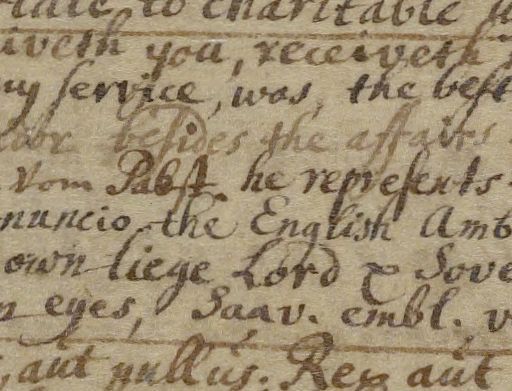 to charitable
iveth you, receiveth
ny service, was, the best
besides the affairs
Vom Pabst. he represents
nuncio the English Amb
own liege Lord & Sove
n eyes, Saav. embl. v
, aut nullus. Rex aut